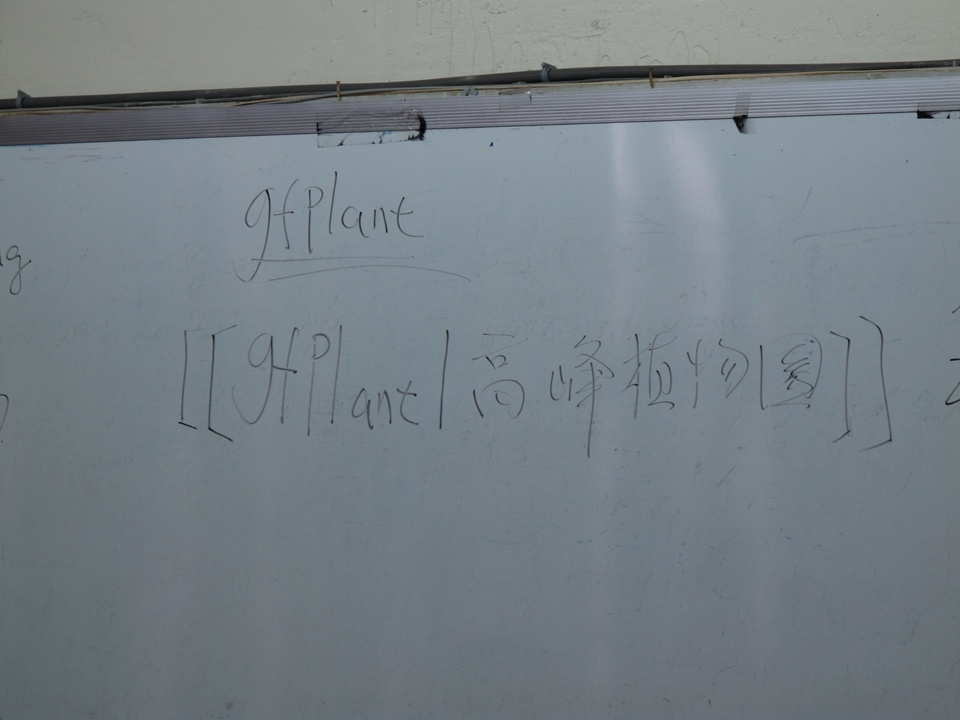 gfPlant
[[gfPlant|高峰植物園]]